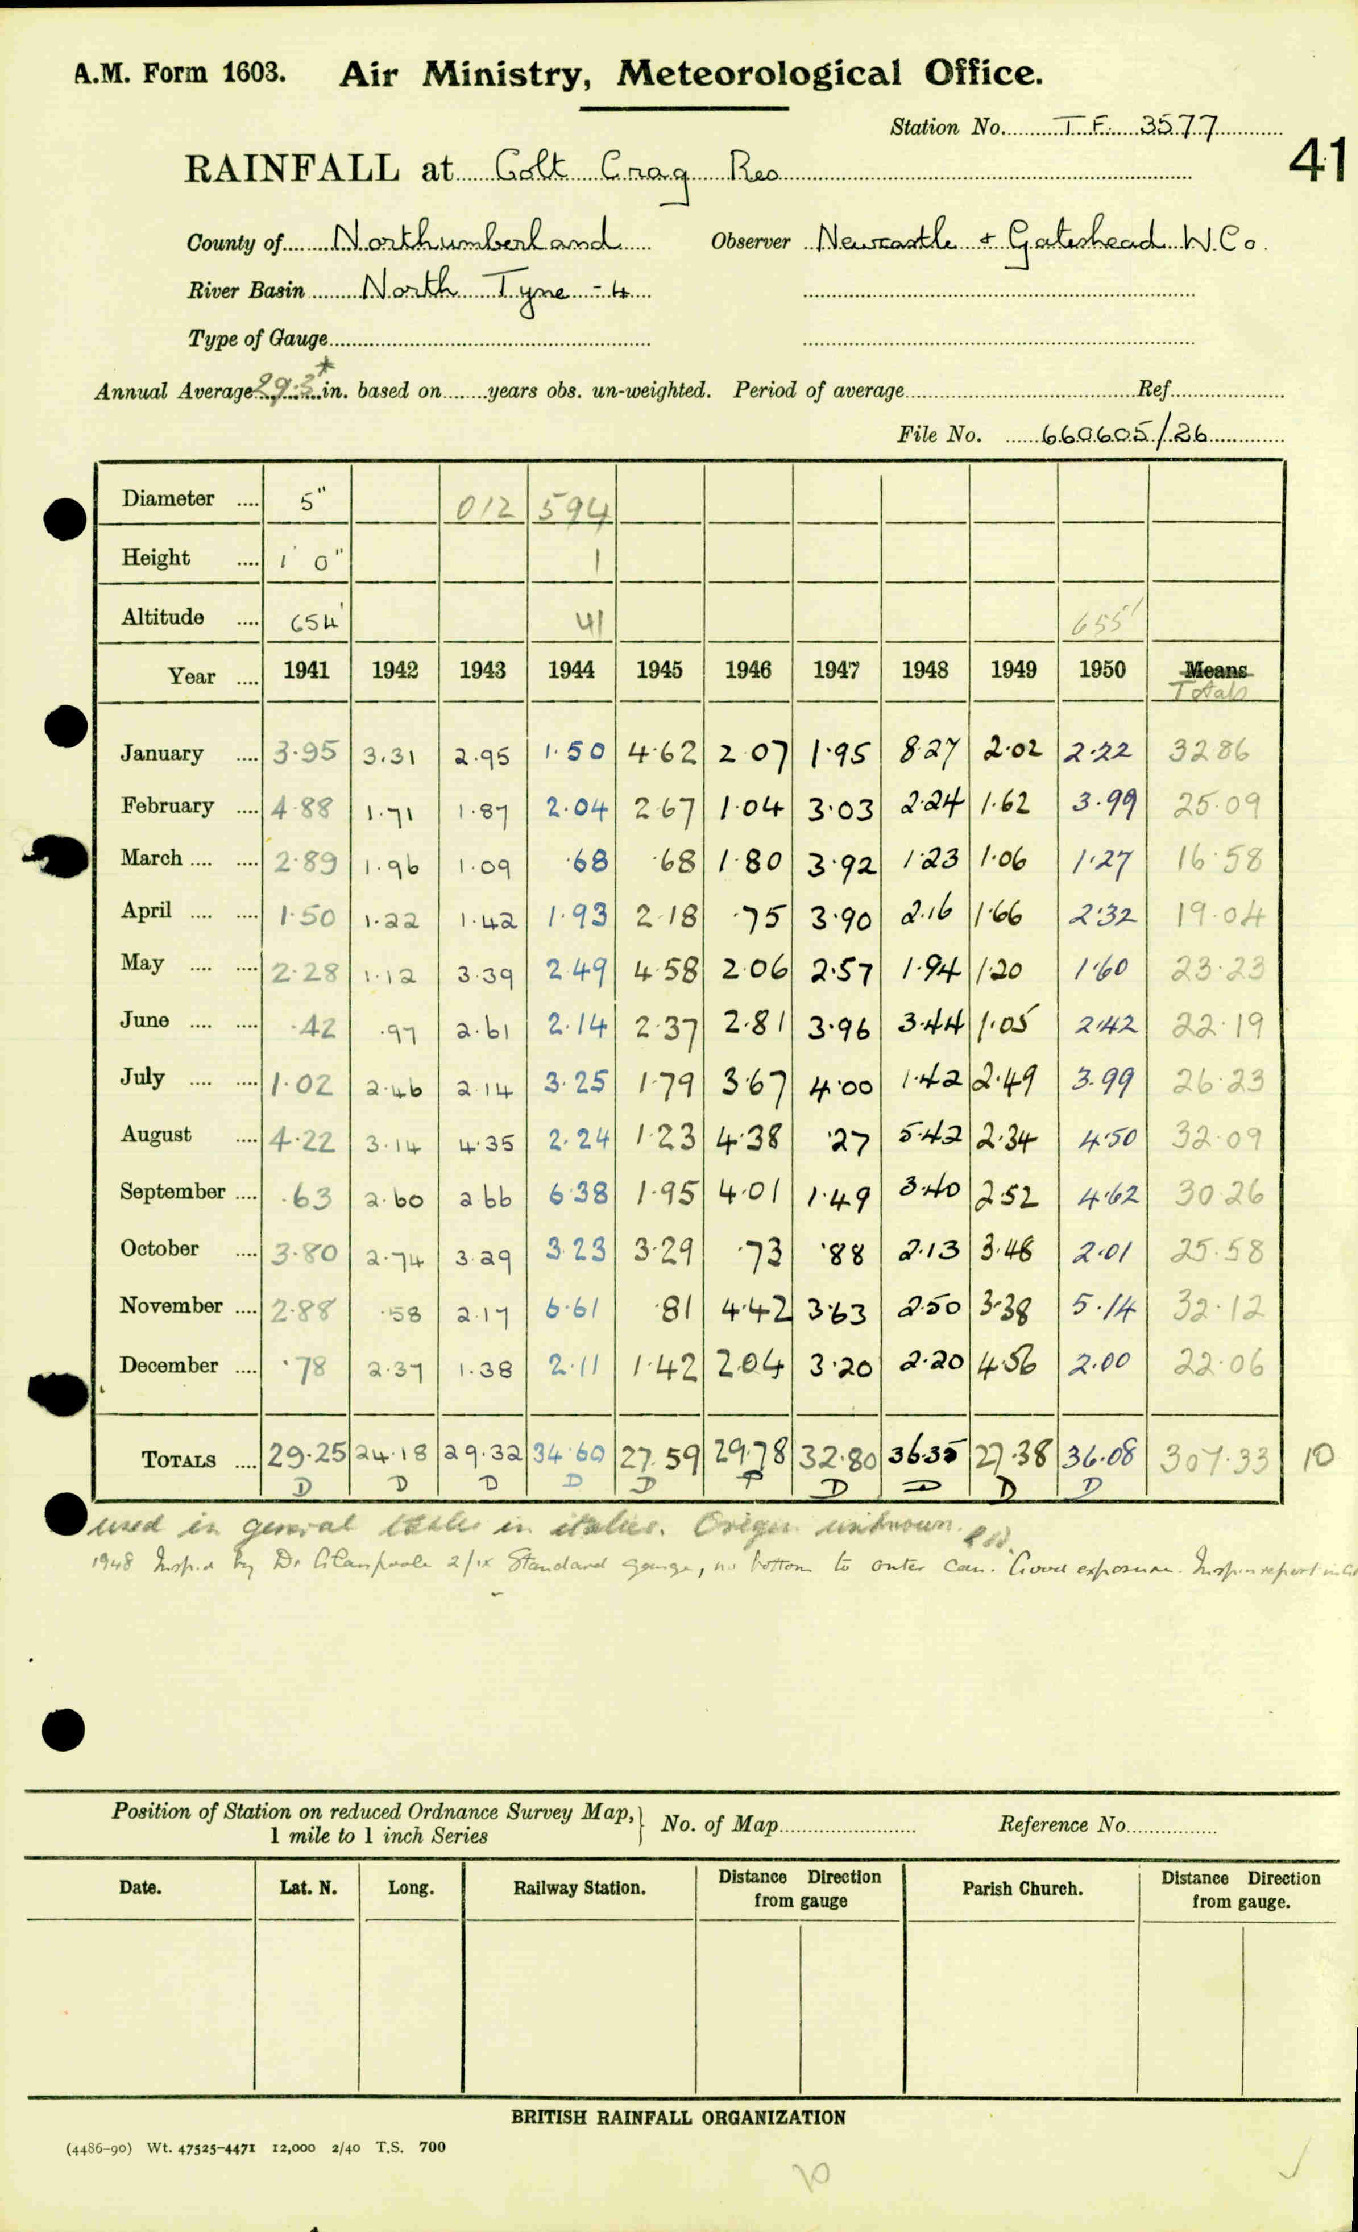 A.M. Form 1603. Air Ministry, Meteorological Office.
Station No. T.F. 3577
41
RAINFALL at Colt Crag Res
County of Northumberland Observer Newcastle + Gateshead W.Co.
River Basin North Tyne - 4
Type of Gauge
Annual Average 29.3* in. based on years obs. un-weighted. Period of average Ref.
File No. 660605/26
Diameter .... 5" 012 594
Height .... 1' 0" 1
Altitude .... 654' 41 655'
Year .... 1941 1942 1943 1944 1945 1946 1947 1948 1949 1950 Means
Totals
January .... 3.95 3.31 2.95 1.50 4.62 2.07 1.95 8.27 2.02 2.22 32.86
February .... 4.88 1.71 1.87 2.04 2.67 1.04 3.03 2.24 1.62 3.99 25.09
March .... .... 2.89 1.96 1.09 .68 .68 1.80 3.92 1.23 1.06 1.27 16.58
April .... .... 1.50 1.22 1.42 1.93 2.18 .75 3.90 2.16 1.66 2.32 19.04
May .... .... 2.28 1.12 3.39 2.49 4.58 2.06 2.57 1.94 1.20 1.60 23.23
June .... .... .42 .97 2.61 2.14 2.37 2.81 3.96 3.44 1.05 2.42 22.19
July .... .... 1.02 2.46 2.14 3.25 1.79 3.67 4.00 1.42 2.49 3.99 26.23
August .... 4.22 3.14 4.35 2.24 1.23 4.38 .27 5.42 2.34 4.50 32.09
September .... .63 2.60 2.66 6.38 1.95 4.01 1.49 3.40 2.52 4.62 30.26
October .... 3.80 2.74 3.29 3.23 3.29 .73 .88 2.13 3.48 2.01 25.58
November .... 2.88 .58 2.17 6.61 .81 4.42 3.63 2.50 3.38 5.14 32.12
December .... .78 2.37 1.38 2.11 1.42 2.04 3.20 2.20 4.56 2.00 22.06
TOTALS .... 29.25 24.18 29.32 34.60 27.59 29.78 32.80 36.35 27.38 36.08 307.33 10
D D D D D P D D D D
used in general tables in italics. Origin unknown.
1948 Insp.d by Dr Glasspoole 2/ix Standard gauge, no bottom to outer can. Good exposure. Insp.n report in
Position of Station on reduced Ordnance Survey Map,
1 mile to 1 inch Series
No. of Map Reference No.
Date. Lat. N. Long. Railway Station. Distance Direction
from gauge Parish Church. Distance Direction
from gauge.
BRITISH RAINFALL ORGANIZATION
(4486-90) Wt. 47525-4471 12,000 2/40 T.S. 700